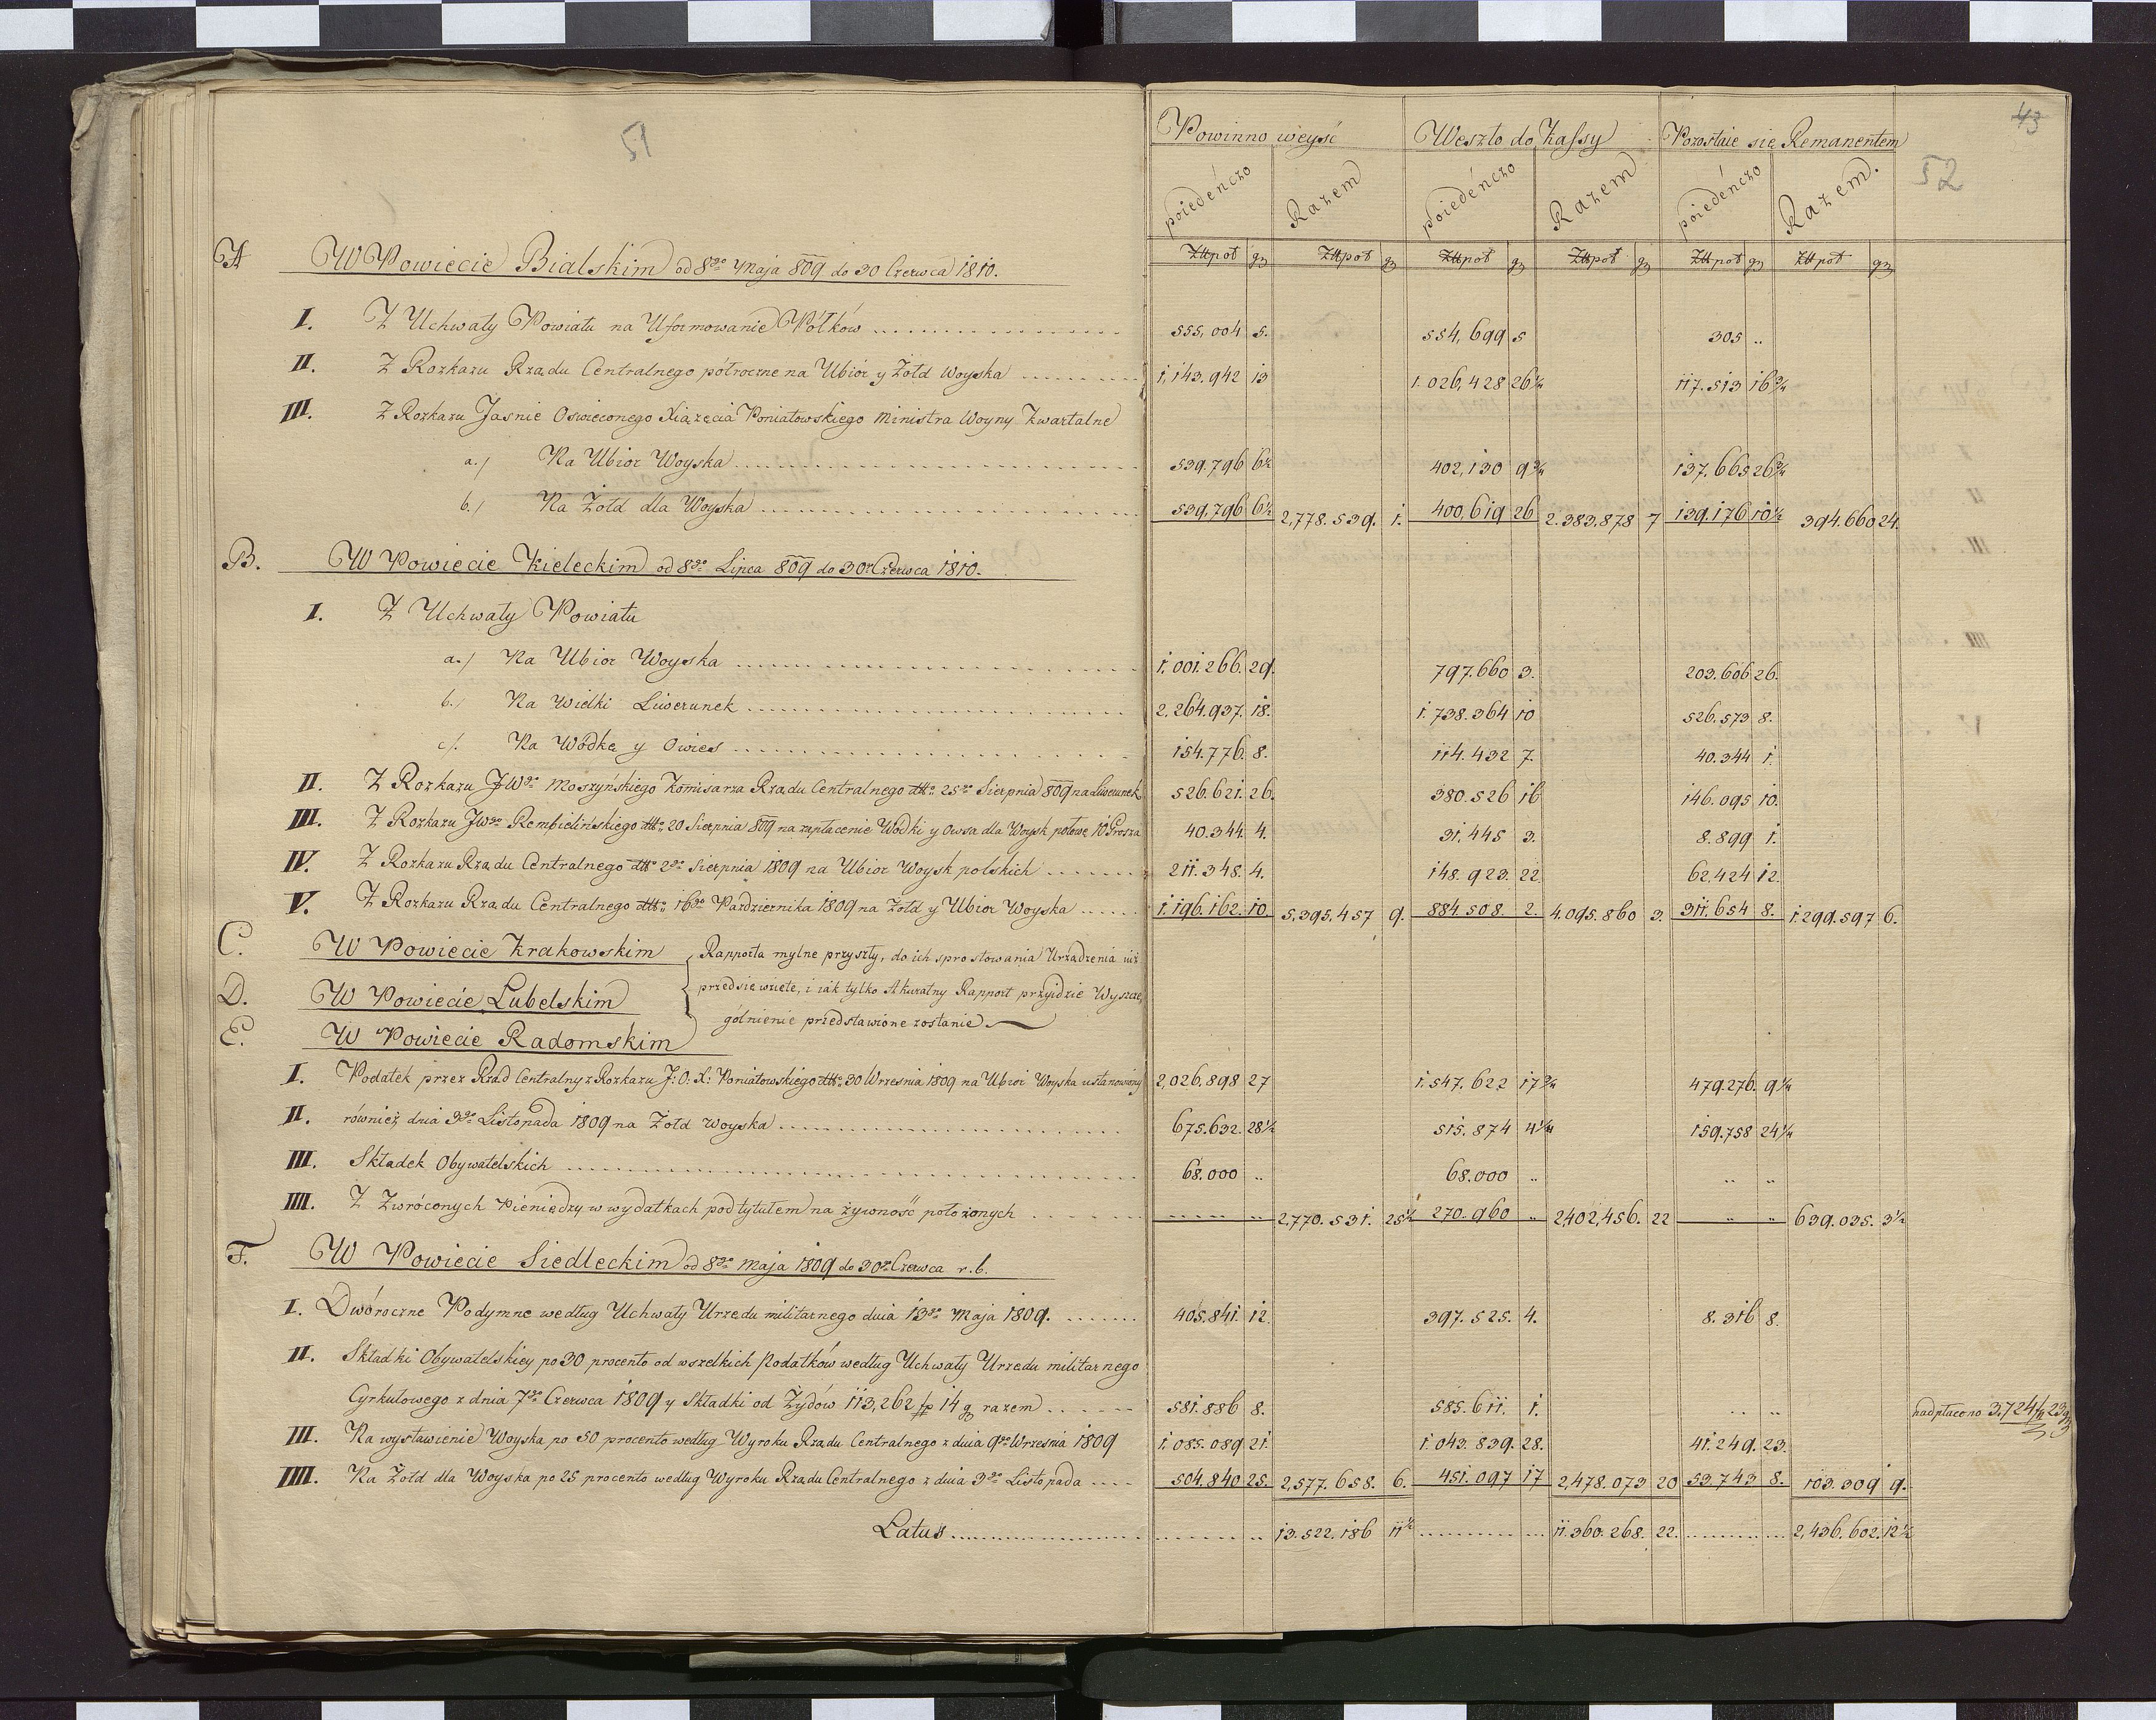 51
43
52
Powinno weyść Weszło do Kassy Pozostaie się Remanentem
poiedéńczo Razem poiedéńczo Razem poiedéńczo Razem.
Złłpoł gr Złłpoł gr Złłpoł gr Złłpoł gr Złłpoł gr Złłpoł gr
A W Powiecie Bialskim od 8go Maja 809 do 30 Czerwca 1810.
I. Z Uchwały Powiatu na Uformowanie Półków 555,004 5. 554,699 5 305 ..
II. Z Rozkazu Rządu Centralnego półroczne na Ubior y Żołd Woyska 1,143.942 13 1.026,428 26¼ 117.513 16¾
III. Z Rozkazu Jasnie Oswieconego Xiązęcia Poniatowskiego Ministra Woyny Kwartalne
a./ Na Ubior Woyska 539.796 6½ 402,130 9¾ 137.665 26¾
b./ Na Żołd dla Woyska 539,796 6½ 2,778.539. 1. 400,619 26 2.383.878 7 139.176 10½ 394.660 24.
B. W Powiecie Kieleckim od 8go Lipca 809 do 30go Czerwca 1810.
I. Z Uchwały Powiatu
a./ Na Ubior Woyska 1.001.266. 29. 797.660 3. 203.606 26.
b./ Na Wielki Liwerunek 2.264.937. 18. 1.738.364 10 526.573 8.
c/. Na Wódkę y Owies 154.776. 8. 114.432 7. 40.344 1.
II. Z Rozkazu JWgo Moszyńskiego Komisarza Rządu Centralnego dtto 25go Sierpnia 809 na Liwerunek 526.621. 26. 380.526 16 146.095 10.
III. Z Rozkazu JWgo Rembielińskiego dtto 20 Sierpnia 809 na zapłacenie Wodki y Owsa dla Woysk połowę 10 Grosza 40.344. 4. 31,445 3. 8.899 1.
IV. Z Rozkazu Rządu Centralnego dtto 2go Sierpnia 1809 na Ubior Woysk polskich 211.348. 4. 148.923. 22 62,424 12.
V. Z Rozkazu Rządu Centralnego dtto 16go Pazdziernika 1809 na Żołd y Ubior Woyska 1.196.162. 10. 5,395,457 9. 884.508. 2. 4.095.860 3. 311.654 8. 1.299.597 6.
C. W Powiecie Krakowskim
D. W Powiecie Lubelskim
Rapporta mylne przyszły, do ich sprostowania Urządzenia iuż
przedsięwzięte, i iak tylko Akuratny Rapport przyidzie Wyszcze,
gólnienie przedstawione zostanie
E. W Powiecie Radomskim
I. Podatek przez Rząd Centralny z Rozkazu J: O: X: Poniatowskiego dtto 30 Wrzesnia 1809 na Ubior Woyska ustanowiony 2,026.898 27 1.547.622 17¾ 479.276. 9¼
II. również dnia 3go Listopada 1809 na Żołd woyska 675.632. 28½ 515.874 4¼ 159.758 24¼
III. Składek Obywatelskich 68.000 .. 68.000 .. .. ..
IIII. Z Zwróconych Pieniędzy w wydatkach pod tytułem na żywność położonych 2,770.531. 25½ 270.960 .. 2,402,456. 22 .. .. 639.035. 3½
F. W Powiecie Siedleckim od 8go Maja 1809 do 30go Czerwca r. b.
I. Dwóroczne Podymne według Uchwały Urzędu militarnego dnia 13go Maja 1809. 405.841. 12. 397.525. 4. 8.316 8.
II. Składki Obywatelskiey po 30 procento od wszelkich Podatków według Uchwały Urzędu militarnego
Cyrkułowego z dnia 7go Czerwca 1809 y Składki od Żydów 113,262 fp 14 g razem 581.886 8. 585.611. 1. .. .. nadpłacono 3.724 f 23 g
III. Na wystawienie Woyska po 50 procento według Wyroku Rządu Centralnego z dnia 9go Wrzesnia 1809 1.085.089 21. 1.043.839. 28. 41.249. 23.
IIII. Na Żołd dla Woyska po 25 procento według Wyroku Rządu Centralnego z dnia 3go Listopada 504.840 25. 2,577.658. 6. 451.097 17 2,478.073 20 53.743 8. 103.309 9.
Latus 13.522.186 11½ 11.360.268. 22. 2,436.602. 12½